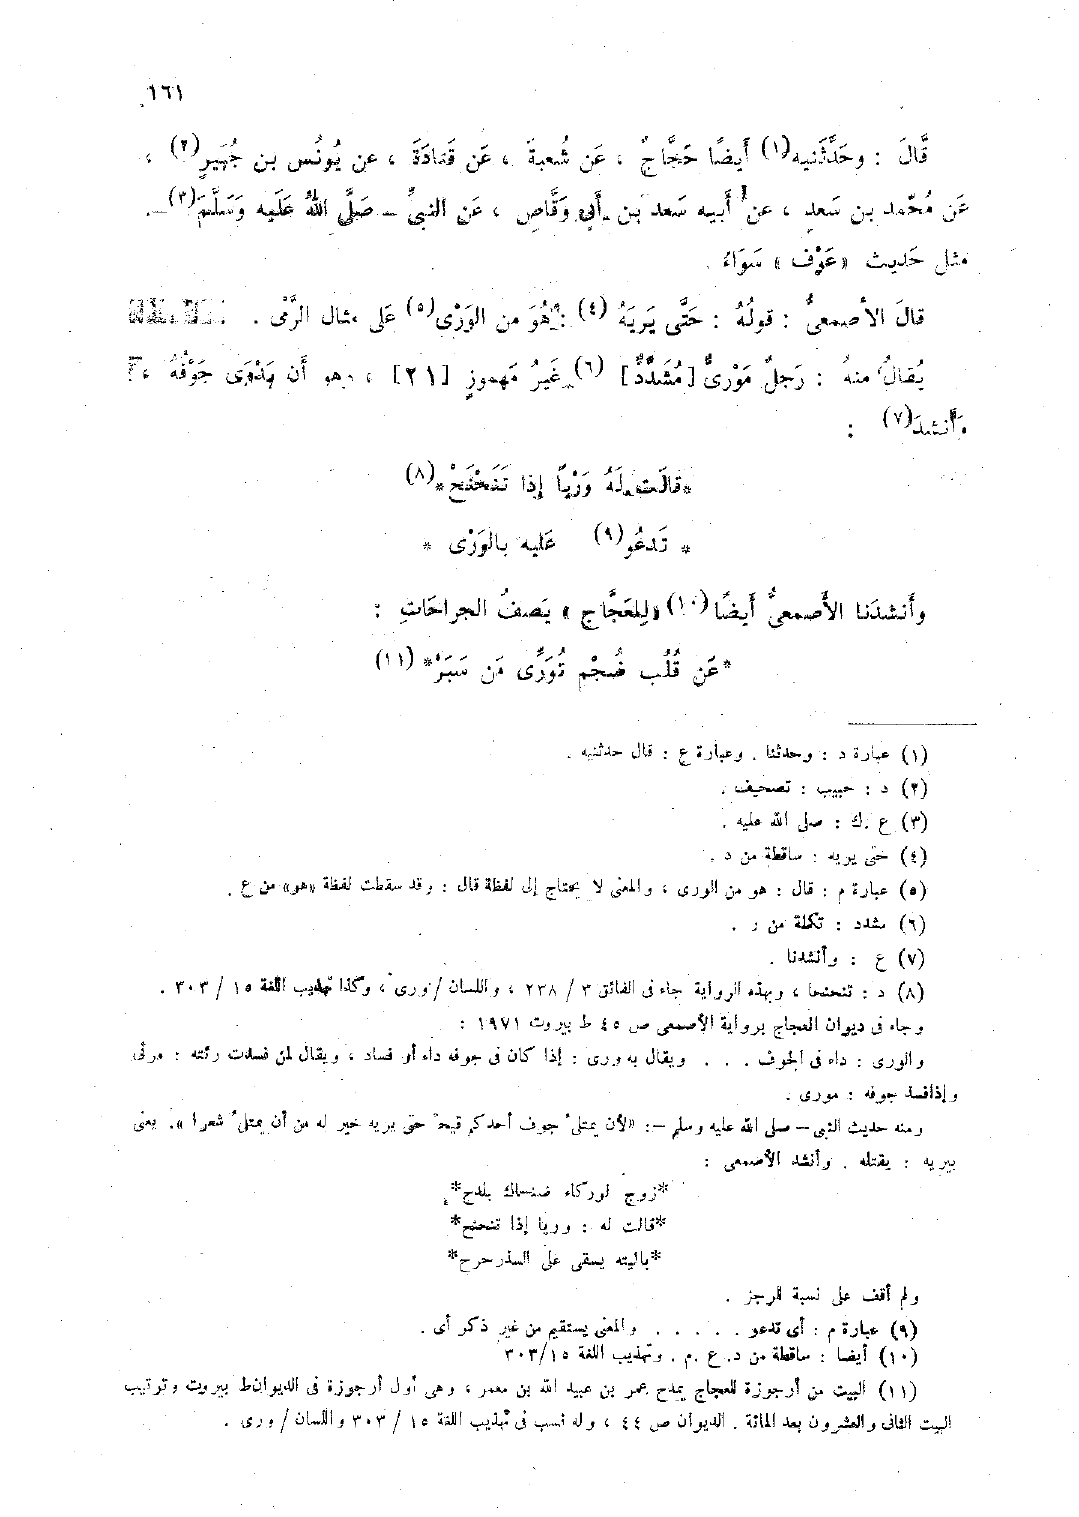 ١٦١
قَالَ : وحَدَّثَنيه(١) أَيضًا حَجَّاجٌ ، عَن شُعبةَ ، عَن قَتادَةَ ، عن يُونُس بن جُبَيرٍ(٢) ،
عَن مُحَمد بن سَعدٍ ، عن أَبيه سَعد بن أَبي وَقَّاصٍ ، عَن النبيِّ – صَلَّى اللهُ عَلَيه وَسَلَّمَ(٣)–
مثل حَديث «عَوْف» سَوَاءً .
قالَ الأصمعىُّ : قولُهُ : حَتَّى يَرِيَهُ (٤) : هُوَ من الوَرْىِ(٥) عَلى مثال الرَّمْى .
يُقالُ منهُ : رَجلٌ مَوْرىٌّ [مُشَدَّدٌ] (٦) غَيرُ مَهموزٍ [٢١] ، وهو أَن يَدْوَى جَوْفُهُ ،
وأَنشدَ(٧) :
*قالَت لَهُ وَرْياً إذا تَنَحْنَحْ*(٨)
* تَدعُو(٩) عَليه بالوَرْى *
وأَنشدَنا الأَصمعىُّ أَيضًا(١٠) «لِلعَجَّاجِ» يَصفُ الجراحَاتِ :
*عَن قُلُب ضُجْم تُوَرِّى مَن سَبَرْ* (١١)
(١) عبارة د : وحدثنا . وعبارة ع : قال حدثنيه .
(٢) د : حبيب : تصحيف .
(٣) ع . ك : صلى الله عليه .
(٤) حتى يريه : ساقطة من د .
(٥) عبارة م : قال : هو من الورى ، والمعنى لا يحتاج إلى لفظة قال : وقد سقطت لفظة «هو» من ع .
(٦) مشدد : تكملة من ر .
(٧) ع : وأنشدنا .
(٨) د : تنحنحا ، وبهذه الرواية جاء فى الفائق ٣ / ٢٣٨ ، واللسان / ورى ، وكذا تهذيب اللغة ١٥ / ٣٠٣ .
وجاء فى ديوان العجاج برواية الأصمعى ص ٤٥ ط بيروت ١٩٧١ :
والورى : داء فى الجوف . . . ويقال به ورى : إذا كان فى جوفه داء أو فساد ، ويقال لمن فسدت رئته : مرئى
وإذا فسد جوفه : مورى .
ومنه حديث النبى – صلى الله عليه وسلم –: «لأن يمتلئ جوف أحدكم قيحا حتى يريه خير له من أن يمتلئ شعرا». يعنى
بيريه : يقتله . وأنشد الأصمعى :
*زوج لوركاء ضنساك بلدح*
*قالت له : وريا إذا تنحنح*
*ياليته يسقى على السذرحرح*
ولم أقف على نسبة الرجز .
(٩) عبارة م : أى تدعو . . . . . والمعنى يستقيم من غير ذكر أى .
(١٠) أيضا : ساقطة من د. ع .م. وتهذيب اللغة ٣٠٣/١٥
(١١) البيت من أرجوزة للعجاج يمدح عمر بن عبيد الله بن معمر ، وهى أول أرجوزة فى الديوان ط بيروت وترتيب
البيت الثانى والعشرون بعد المائة . الديوان ص ٤٤ ، وله نسب فى تهذيب اللغة ١٥ / ٣٠٣ واللسان / ورى .